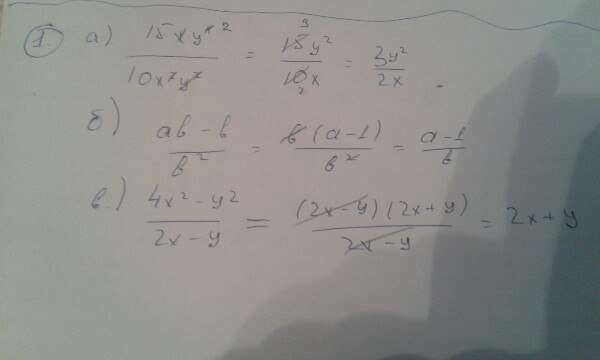 1. а) 15xy⁴ ² / 10x²y² = 15y² / 10x = 3y² / 2x .
б) ab - b / b² = b(a-1) / b² = a-1 / b
в.) 4x² - y² / 2x - y = (2x-y)(2x+y) / 2x-y = 2x+y